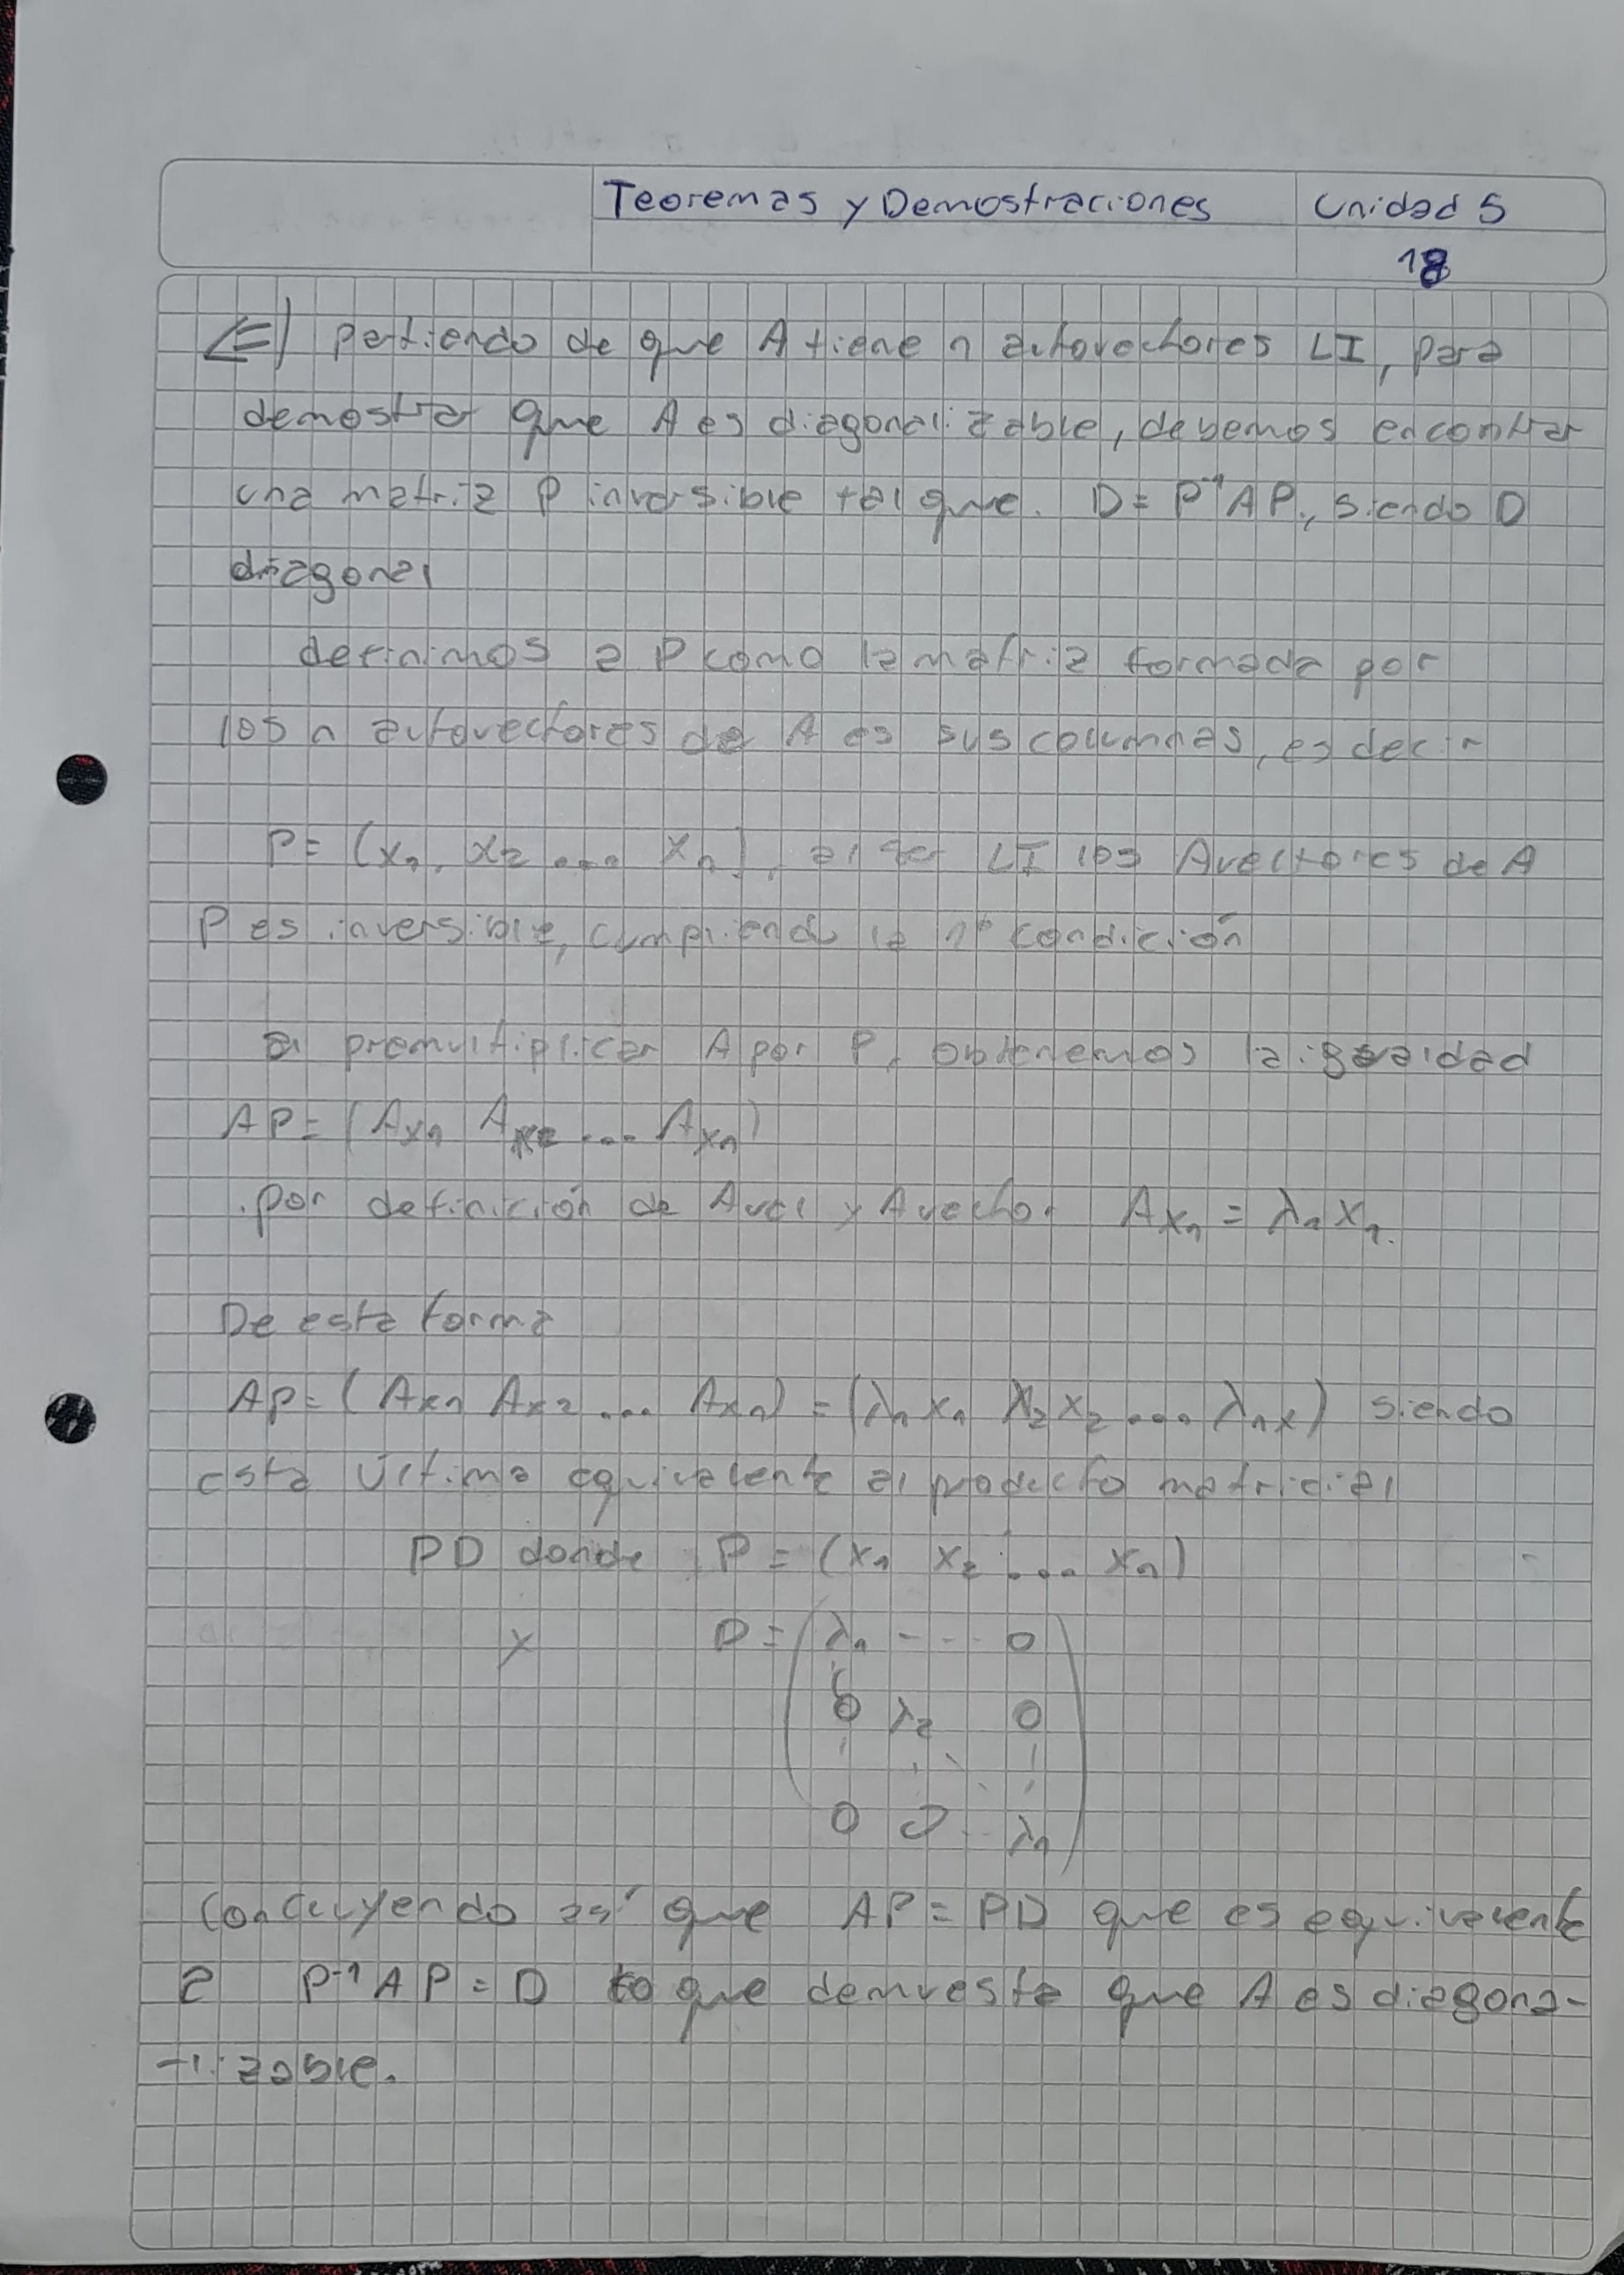 Teoremas y Demostraciones
Unidad 5
18
⇐) partiendo de que A tiene n autovectores LI, para
demostrar que A es diagonalizable, debemos encontrar
una matriz P inversible tal que. D = P⁻¹AP, siendo D
diagonal
definimos a P como la matriz formada por
los n autovectores de A es sus columnas, es decir
P = (x₁, x₂ ... xₙ), al ser LI los Avectores de A
P es inversible, cumpliendo la 1° condición
al premultiplicar A por P, obtenemos la igualdad
AP = (Ax₁ Ax₂ ... Axₙ)
por definición de Aval y Avector Ax₁ = λ₁x₁.
De esta forma
AP = (Ax₁ Ax₂ ... Axₙ) = (λ₁x₁ λ₂x₂ ... λₙx) siendo
esta última equivalente al producto matricial
PD donde P = (x₁ x₂ ... xₙ)
y D = (λ₁ --- 0
0 λ₂ 0
0 0 .. λₙ)
Concluyendo así que AP = PD que es equivalente
a P⁻¹AP = D lo que demuestra que A es diagona-
-lizable.